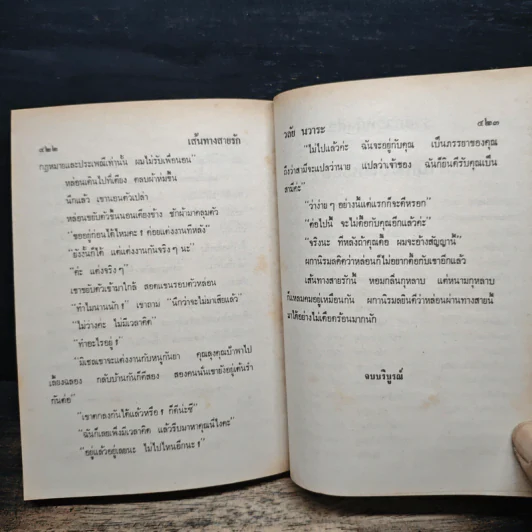 ๔๒๒ เส้นทางสายรัก
กฎหมายและประเพณีเท่านั้น ผมไม่รับเพื่อนอน"
หล่อนเดินไปที่เตียง ตลบผ้าห่มขึ้น
นึกแล้ว เขานอนตัวเปล่า
หล่อนขยับตัวขึ้นนอนเตียงข้าง ชักผ้ามาคลุมตัว
"ขออยู่ก่อนได้ไหมคะ ? ค่อยแต่งงานทีหลัง"
"ยังงั้นก็ได้ แต่แต่งงานกันจริง ๆ นะ"
"ค่ะ แต่งจริง ๆ"
เขาขยับตัวเข้ามาใกล้ สอดแขนรอบตัวหล่อน
"ทำไมนานนัก ? เขาถาม "นึกว่าจะไม่มาเสียแล้ว"
"ไม่ว่างค่ะ ไม่มีเวลาคิด"
"ทำอะไรอยู่ ?
"มิเชลเขาจะแต่งงานกับหนูกันยา คุณลุงคุณป้าพาไป
เลี้ยงฉลอง กลับบ้านกันก็ตีสอง สองคนนั้นเขายังอยู่เต้นรำ
กันต่อ"
"เขาตกลงกันได้แล้วหรือ ? ก็ดีน่ะซี"
"ฉันก็เลยเพิ่งมีเวลาคิด แล้วรีบมาหาคุณนี่ไงคะ"
"อยู่แล้วอยู่เลยนะ ไม่ไปไหนอีกนะ ?
วลัย นวาระ ๔๒๓
"ไม่ไปแล้วค่ะ ฉันจะอยู่กับคุณ เป็นภรรยาของคุณ
ถึงว่าสามีจะแปลว่านาย แปลว่าเจ้าของ ฉันก็ยินดีรับคุณเป็น
สามีค่ะ"
"ว่าง่าย ๆ อย่างนี้แต่แรกก็จะดีหรอก"
"ต่อไปนี้ จะไม่ดื้อกับคุณอีกแล้วค่ะ"
"จริงนะ ทีหลังถ้าคุณดื้อ ผมจะอ้างสัญญานี้"
ผกานิรมลคิดว่าหล่อนก็ไม่อยากดื้อกับเขาอีกแล้ว
เส้นทางสายรักนี้ หอมกลิ่นกุหลาบ แต่หนามกุหลาบ
ก็แหลมคมอยู่เหมือนกัน ผกานิรมลยินดีว่าหล่อนผ่านทางสายนี้
มาได้อย่างไม่เดือดร้อนมากนัก
จบบริบูรณ์